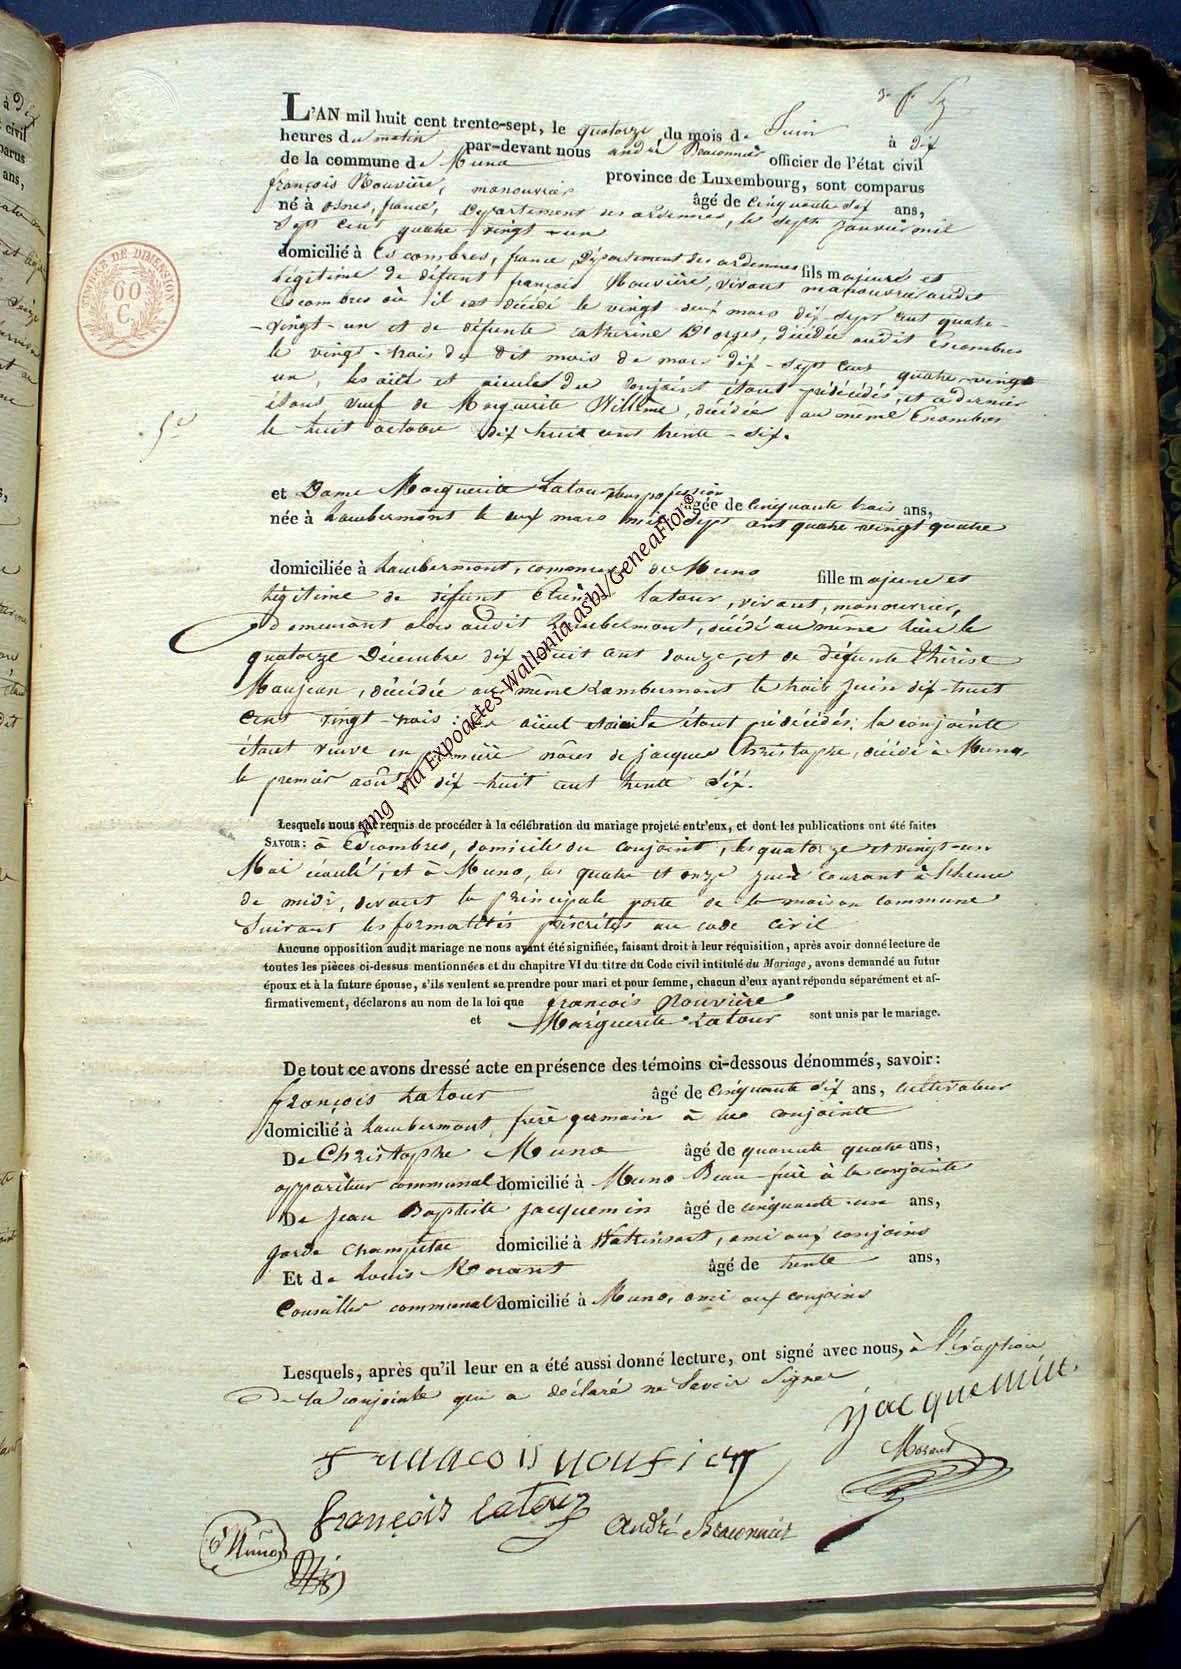 L'AN mil huit cent trente-sept, le quatorze du mois de Juin à dix
heures du matin par-devant nous andré Braconnier officier de l'état civil
de la commune de Muno province de Luxembourg, sont comparus
françois Nouvière, manouvrier âgé de cinquante six ans,
né à osnes, france, Département des ardennes, le sept janvier mil
sept cent quatre vingt un
domicilié à Escombres, france, Département des ardennes fils majeure et
légitime de défunt françois Nouvière, vivant manouvrier audit
Escombres où il est décédé le vingt-deux mars dix-sept cent quatre-
-vingt-un et de défunte catherine D'orges, décédée audit Escombres
le vingt-trois du dit mois de mars dix-sept cent quatre-vingt
un, les aïeul et aieules du conjoint étant prédécédés, et a dernier
étant veuf de Marguerite Willeme, décédée au meme Escombres
le huit octobre dix huit cent trente-six.
et Dame Marguerite Latour sans profession âgée de cinquante trois ans,
née à Lambermont le mars mil sept cent quatre vingt quatre
domiciliée à Lambermont, commune de Muno fille majeure et
légitime de défunt Latour, vivant, manouvrier,
demeurant alors audit Lambermont, décédé au même lieu le
quatorze Décembre dix huit cent douze, et de défunte thérèse
Maujean, décédée au même Lambermont le huit Juin dix-huit
cent vingt-trois; aïeul et aieule étant prédécédés; la conjointe
étant veuve en première nôces de jacques Christophe, décédé à Muno,
le premier août dix-huit cent trente six.
Lesquels nous ont requis de procéder à la célébration du mariage projeté entr'eux, et dont les publications ont été faites
SAVOIR: à Escombres, domicile du conjoint, les quatorze et vingt-un
Mai écoulé; et à Muno, les quatre et onze juin courant à l'heure
de midi, devant la principale porte de la maison commune
Suivant les formalités préscrites au code civil
Aucune opposition audit mariage ne nous ayant été signifiée, faisant droit à leur réquisition, après avoir donné lecture de
toutes les pièces ci-dessus mentionnées et du chapitre VI du titre du Code civil intitulé du Mariage, avons demandé au futur
époux et à la future épouse, s'ils veulent se prendre pour mari et pour femme, chacun d'eux ayant répondu séparément et af-
firmativement, déclarons au nom de la loi que françois Nouvière
et Marguerite Latour sont unis par le mariage.
De tout ce avons dressé acte en présence des témoins ci-dessous dénommés, savoir:
françois Latour âgé de cinquante six ans, cultivateur
domicilié à Lambermont, frère germain à la conjointe
De Christophe Muno âgé de quarante quatre ans,
appariteur communal domicilié à Muno Beau-frère à la conjointe
De Jean Baptiste jacquemin âgé de cinquante un ans,
garde champêtre domicilié à Watrinsart, ami aux conjoins
Et de Louis Morant âgé de trente ans,
Conseiller communal domicilié à Muno, ami aux conjoins
Lesquels, après qu'il leur en a été aussi donné lecture, ont signé avec nous, à l'éxception
De la conjointe qui a déclaré ne Savoir Signer
jacquemin
Morant
françois
françois Latour
andré Braconnier
Muno
TIMBRE DE DIMENSION
60
C.
img via Expoactes-Wallonia.asbl/GeneaFlor©